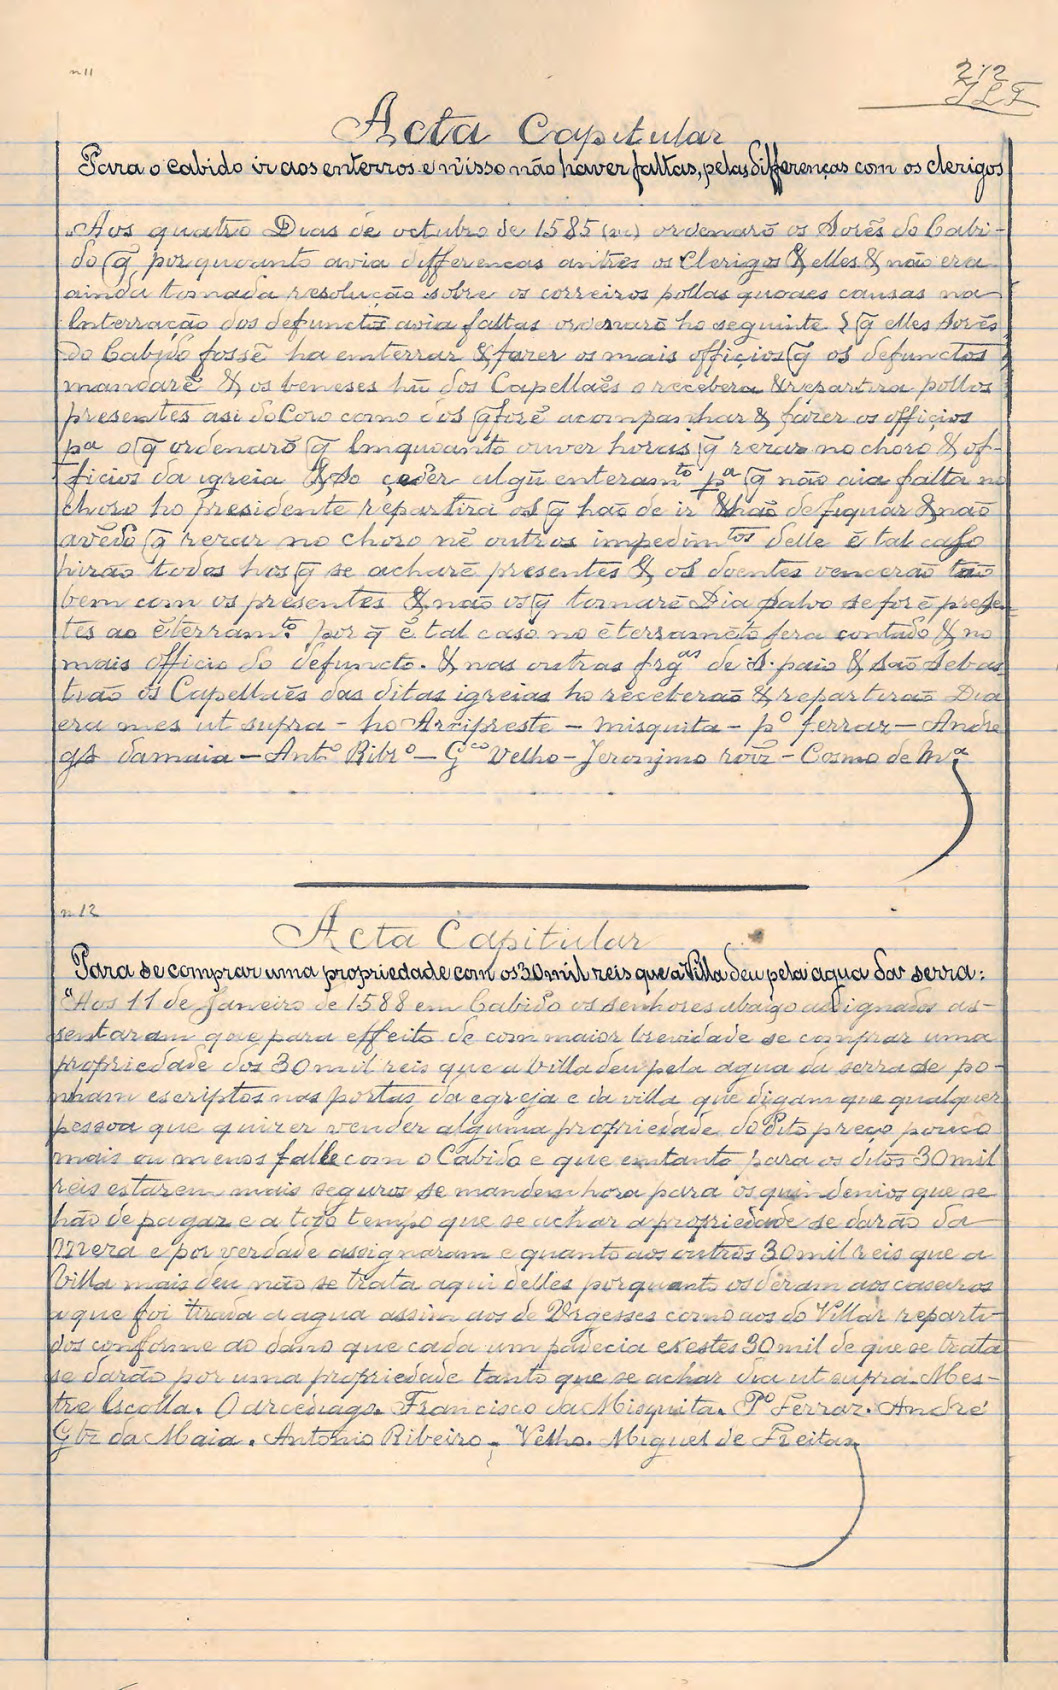 n 11
212
Acta Capitular
Para o cabido ir aos enterros e n'isso não haver faltas, pelas differenças com os clerigos
Aos quatro Dias de octubro de 1585 (sic) ordenarõ os Sorẽs do Cabi-
do q̃ por quoanto avia differencas antres os Clerigos & elles & não era
ainda tomada resolução sobre os correiros pollas quoaes causas na
Interração dos defunctos avia faltas ordenarõ ho seguinte § q̃ elles Sorẽs
Do Cabydo fossẽ ha emterrar & fazer os mais offiçios q̃ os defunctos
mandarẽ & os beneses hũ dos Capellaẽs o recebera & repartira pollos
presentes asi do Coro como dos q̃ forẽ acompanhar & fazer os offiçios
pª o q̃ ordenarõ q̃ Emquoanto ouver horas q̃ rezar no choro & of-
ficios da igreia & so çeder algũ enteramto pª q̃ não aia falta no
choro ho presidente repartira os q̃ hão de ir & hão de fiquar & não
avẽdo q̃ rezar no choro nẽ outros impedimtos delle ẽ tal caso
hirão todos hos q̃ se acharẽ presentes & os doentes vencerão tão
bem com os presentes & não os q̃ tomarẽ Dia salvo se forẽ prese-
tes ao ẽterramto por q̃ ẽ tal caso no ẽterramẽto sera contado & no
mais officio do defuncto. & nas outras frgas de S. paio & São Sebas
tião os Capellaẽs das ditas igreias ho receberaõ & repartiraõ Dia
era mes ut supra - ho Arcipreste - misquita - pº ferraz - Andre
glz damaia - Antº Ribrº - Gco Velho - Jeronjmo roĩz - Cosmo de Mª
n 12
Acta Capitular
Para se comprar uma propriedade com os 30 mil reis que a Villa deu pela agua da serra:
"Aos 11 de Janeiro de 1588 em Cabido os senhores abaixo assignados as-
sentaram que para effeito de com maior brevidade se comprar uma
propriedade dos 30 mil reis que a Villa deu pela agua da serra se po-
nham escriptos nas portas da egreja e da villa que digam que qualquer
pessoa que quizer vender alguma propriedade do dito preço pouco
mais ou menos falle com o Cabido e que emtanto para os ditos 30 mil
reis estarem mais seguros se mandem hora para os quindenios que se
hão de pagar e a todo tempo que se achar a propriedade se darão da
Meza e por verdade assignaram e quanto aos outros 30 mil reis que a
Villa mais deu não se trata aqui delles porquanto os deram aos caseiros
a que foi tirada a agua assim aos de Urgesses como aos do Villar reparti-
dos conforme ao dano que cada um padecia e estes 30 mil de que se trata
se darão por uma propriedade tanto que se achar dia ut supra. Mes-
tre Escolla. O arcediago. Francisco da Misquita. Pº Ferraz. André
Glz da Maia. Antonio Ribeiro - Velho. Miguel de Freitas